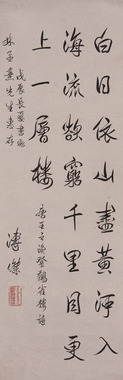 白日依山盡黃河入
海流欲窮千里目更
上一層樓
唐王之渙登鸛雀樓詩
溥傑
戊辰長夏書為
林孟熹先生惠存